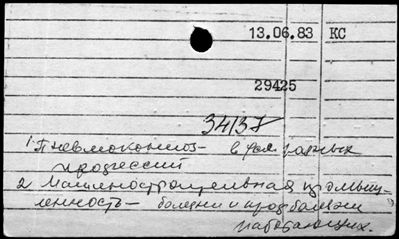 13.06.83 КС
29425
34137
1. Пневмокониоз - в разных
профессий
2. Машиностроительная промыш-
ленность - болезни и проф болезни
работающих.